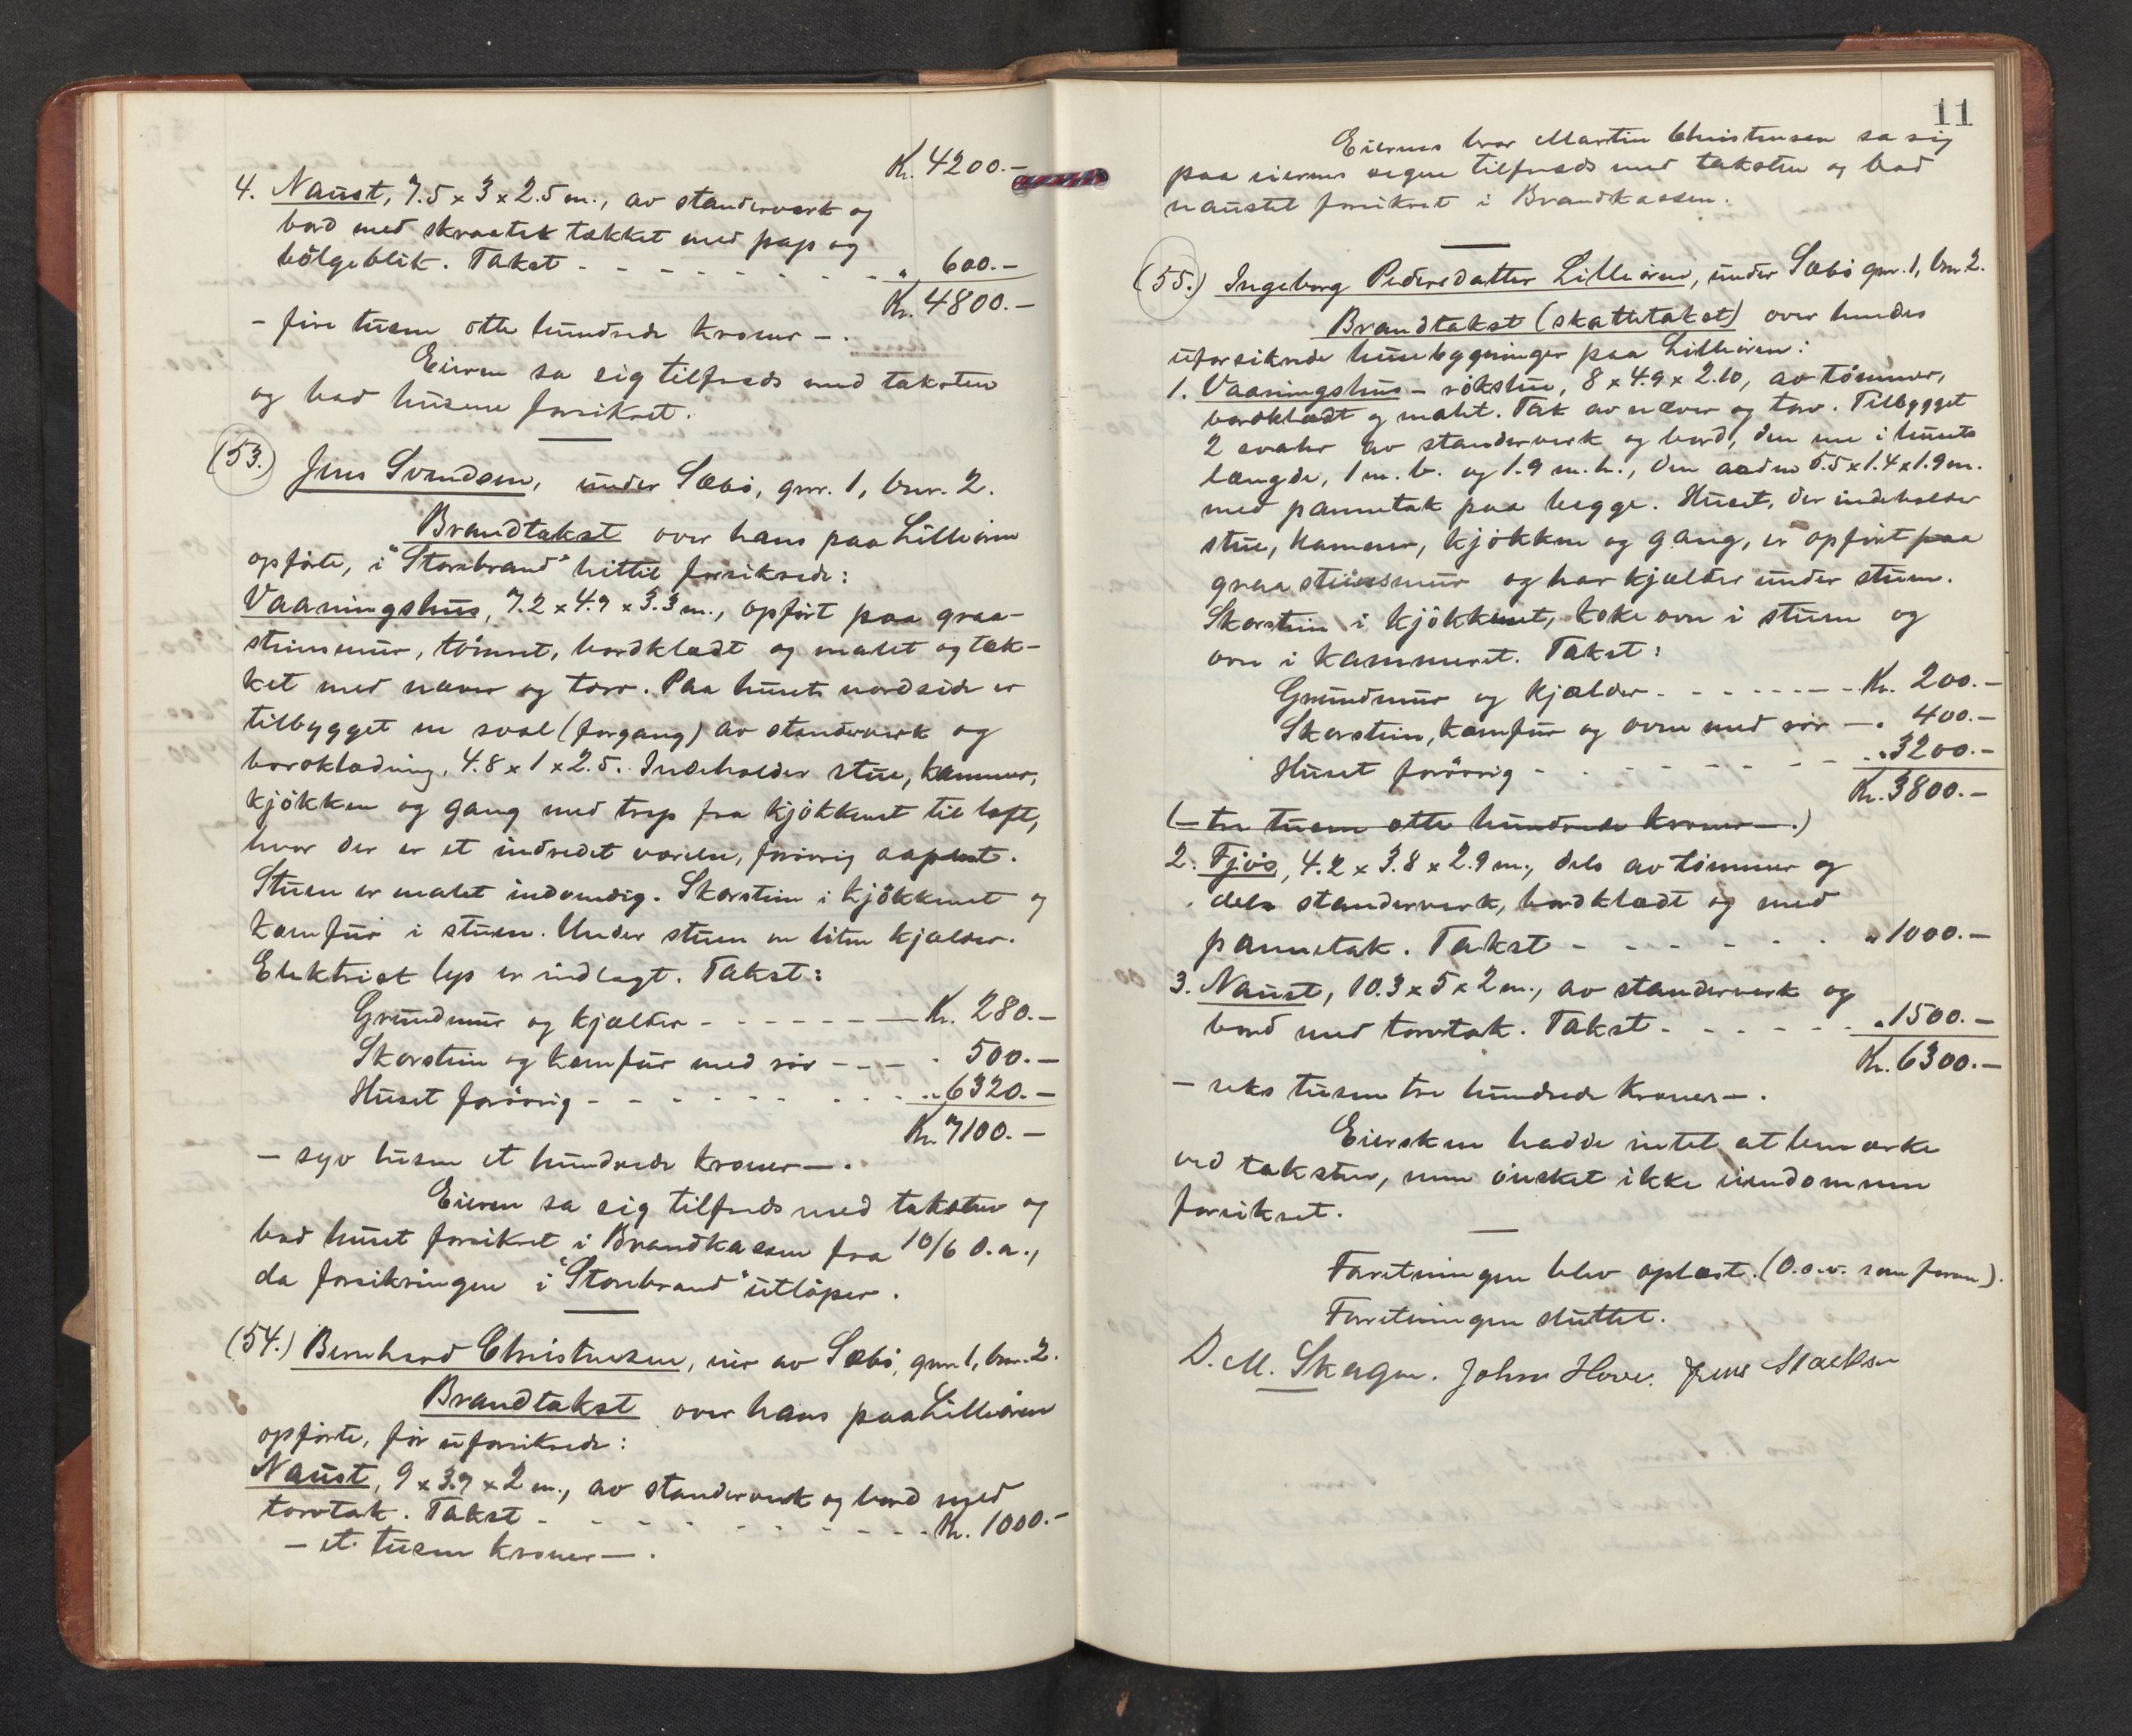 Kr. 4200.-
4. Naust, 7.5 x 3 x 2.5 m., av standerverk og
bord med skraatak tækket med pap og
bölgeblik. Takst - - - - - - - - „ 600.-
Kr. 4800.-
- fire tusen otte hundrede kroner -.
Eieren sa sig tilfreds med taksten
og bad husene forsikret.
(53.) Jens Svendsen, under Sæbö, gnr. 1, bnr. 2.
Brandtakst over hans paa Lilleören
opförte, i "Storebrand" hittil forsikrede:
Vaaningshus, 7.2 x 4.7 x 3.3 m., opfört paa graa-
stensmur, tömret, bordklædt og malet og tæk-
ket med næver og torv. Paa husets nordside er
tilbygget en sval (forgang) av standerverk og
bordklædning, 4.8 x 1 x 2.5. Indeholder stue, kammer,
kjökken og gang med trap fra kjökkenet til loft,
hvor der er et indredet værelse, forövrig aapent.
Stuen er malet indvendig. Skorsten i kjökkenet og
komfur i stuen. Under stuen en liten kjælder.
Elektrisk lys er indlagt. Takst:
Grundmur og kjælder - - - - - - - Kr. 280.-
Skorsten og komfur med rör - - - „ 500.-
Huset forövrig - - - - - - - - - „ 6320.-
Kr. 7100.-
- syv tusen et hundrede kroner -.
Eieren sa sig tilfreds med taksten og
bad huset forsikret i Brandkassen fra 10/6 d.a.,
da forsikringen i "Storebrand" utlöper.
(54.) Bernhard Christensen, eier av Sæbö, gnr. 1, bnr. 2.
Brandtakst over hans paa Lilleören
opförte, för uforsikrede:
Naust, 9 x 3.7 x 2 m., av standerverk og bord med
torvtak. Takst - - - - - - - - - - Kr. 1000.-
- et tusen kroner -.
11
Eierens bror Martin Christensen sa sig
paa eierens vegne tilfreds med taksten og bad
naustet forsikret i Brandkassen.
(55.) Ingeborg Pedersdatter Lilleören, under Sæbö gnr. 1, bnr. 2.
Brandtakst (skattetakst) over hendes
uforsikrede husebygninger paa Lilleören:
1. Vaaningshus - rökstue, 8 x 4.9 x 2.10, av tömmer,
bordklædt og malet. Tak av næver og torv. Tilbygget
2 svaler av standerverk og bord, den ene i husets
længde, 1 m. b. og 1.9 m. h., den anden 5.5 x 1.4 x 1.9 m.
med pannetak paa begge. Huset, der indeholder
stue, kammer, kjökken og gang, er opfört paa
graastensmur og har kjælder under stuen.
Skorsten i kjökkenet, kokeovn i stuen og
ovn i kammeret. Takst:
Grundmur og kjælder - - - - - - - Kr. 200.-
Skorsten, komfur og ovne med rör - „ 400.-
Huset forövrig - - - - - - - - „ 3200.-
Kr. 3800.-
(- tre tusen otte hundrede kroner -.)
2. Fjös, 4.2 x 3.8 x 2.9 m., dels av tömmer og
dels standerverk, bordklædt og med
pannetak. Takst - - - - - - - „ 1000.-
3. Naust, 10.3 x 5 x 2 m., av standerverk og
bord med torvtak. Takst - - - - - - „ 1500.-
Kr. 6300.-
- seks tusen tre hundrede kroner -.
Eiersken hadde intet at bemærke
ved taksten, men önsket ikke eiendommen
forsikret.
Forretningen blev oplæst. (O.s.v. som foran).
Forretningen sluttet.
D. M. Skagen. John Hove. Jens